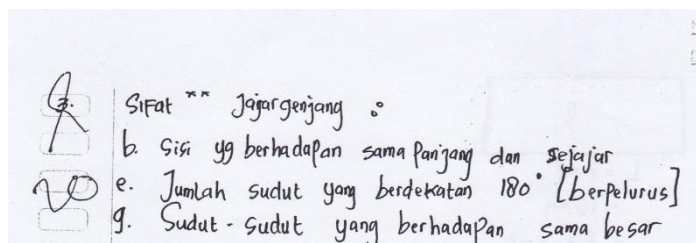 3. Sifat ** Jajargenjang :
b. Sisi yg berhadapan sama panjang dan sejajar
e. Jumlah sudut yang berdekatan 180° [berpelurus]
g. Sudut - sudut yang berhadapan sama besar